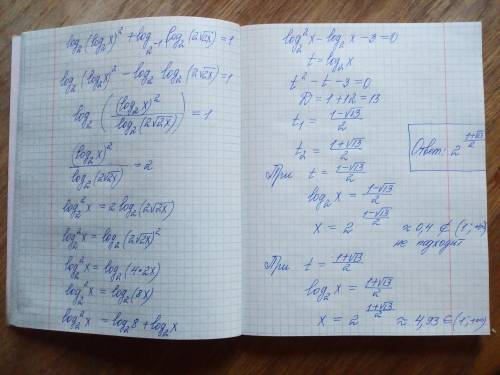 log₂(log₂x)² + log₂₋₁ log₂(2√2x) = 1
log₂(log₂x)² − log₂ log₂(2√2x) = 1
log₂((log₂x)² / log₂(2√2x)) = 1
(log₂x)² / log₂(2√2x) = 2
log₂²x = 2 log₂(2√2x)
log₂²x = log₂(2√2x)²
log₂²x = log₂(4·2x)
log₂²x = log₂(8x)
log₂²x = log₂8 + log₂x
log₂²x − log₂x − 3 = 0
t = log₂x
t² − t − 3 = 0
D = 1 + 12 = 13
t₁ = (1−√13)/2
t₂ = (1+√13)/2
При t = (1−√13)/2
log₂x = (1−√13)/2
x = 2^((1−√13)/2) ≈ 0,4 ∉ (1; +∞)
не подходит
При t = (1+√13)/2
log₂x = (1+√13)/2
x = 2^((1+√13)/2) ≈ 4,93 ∈ (1; +∞)
Ответ: 2^((1+√13)/2)